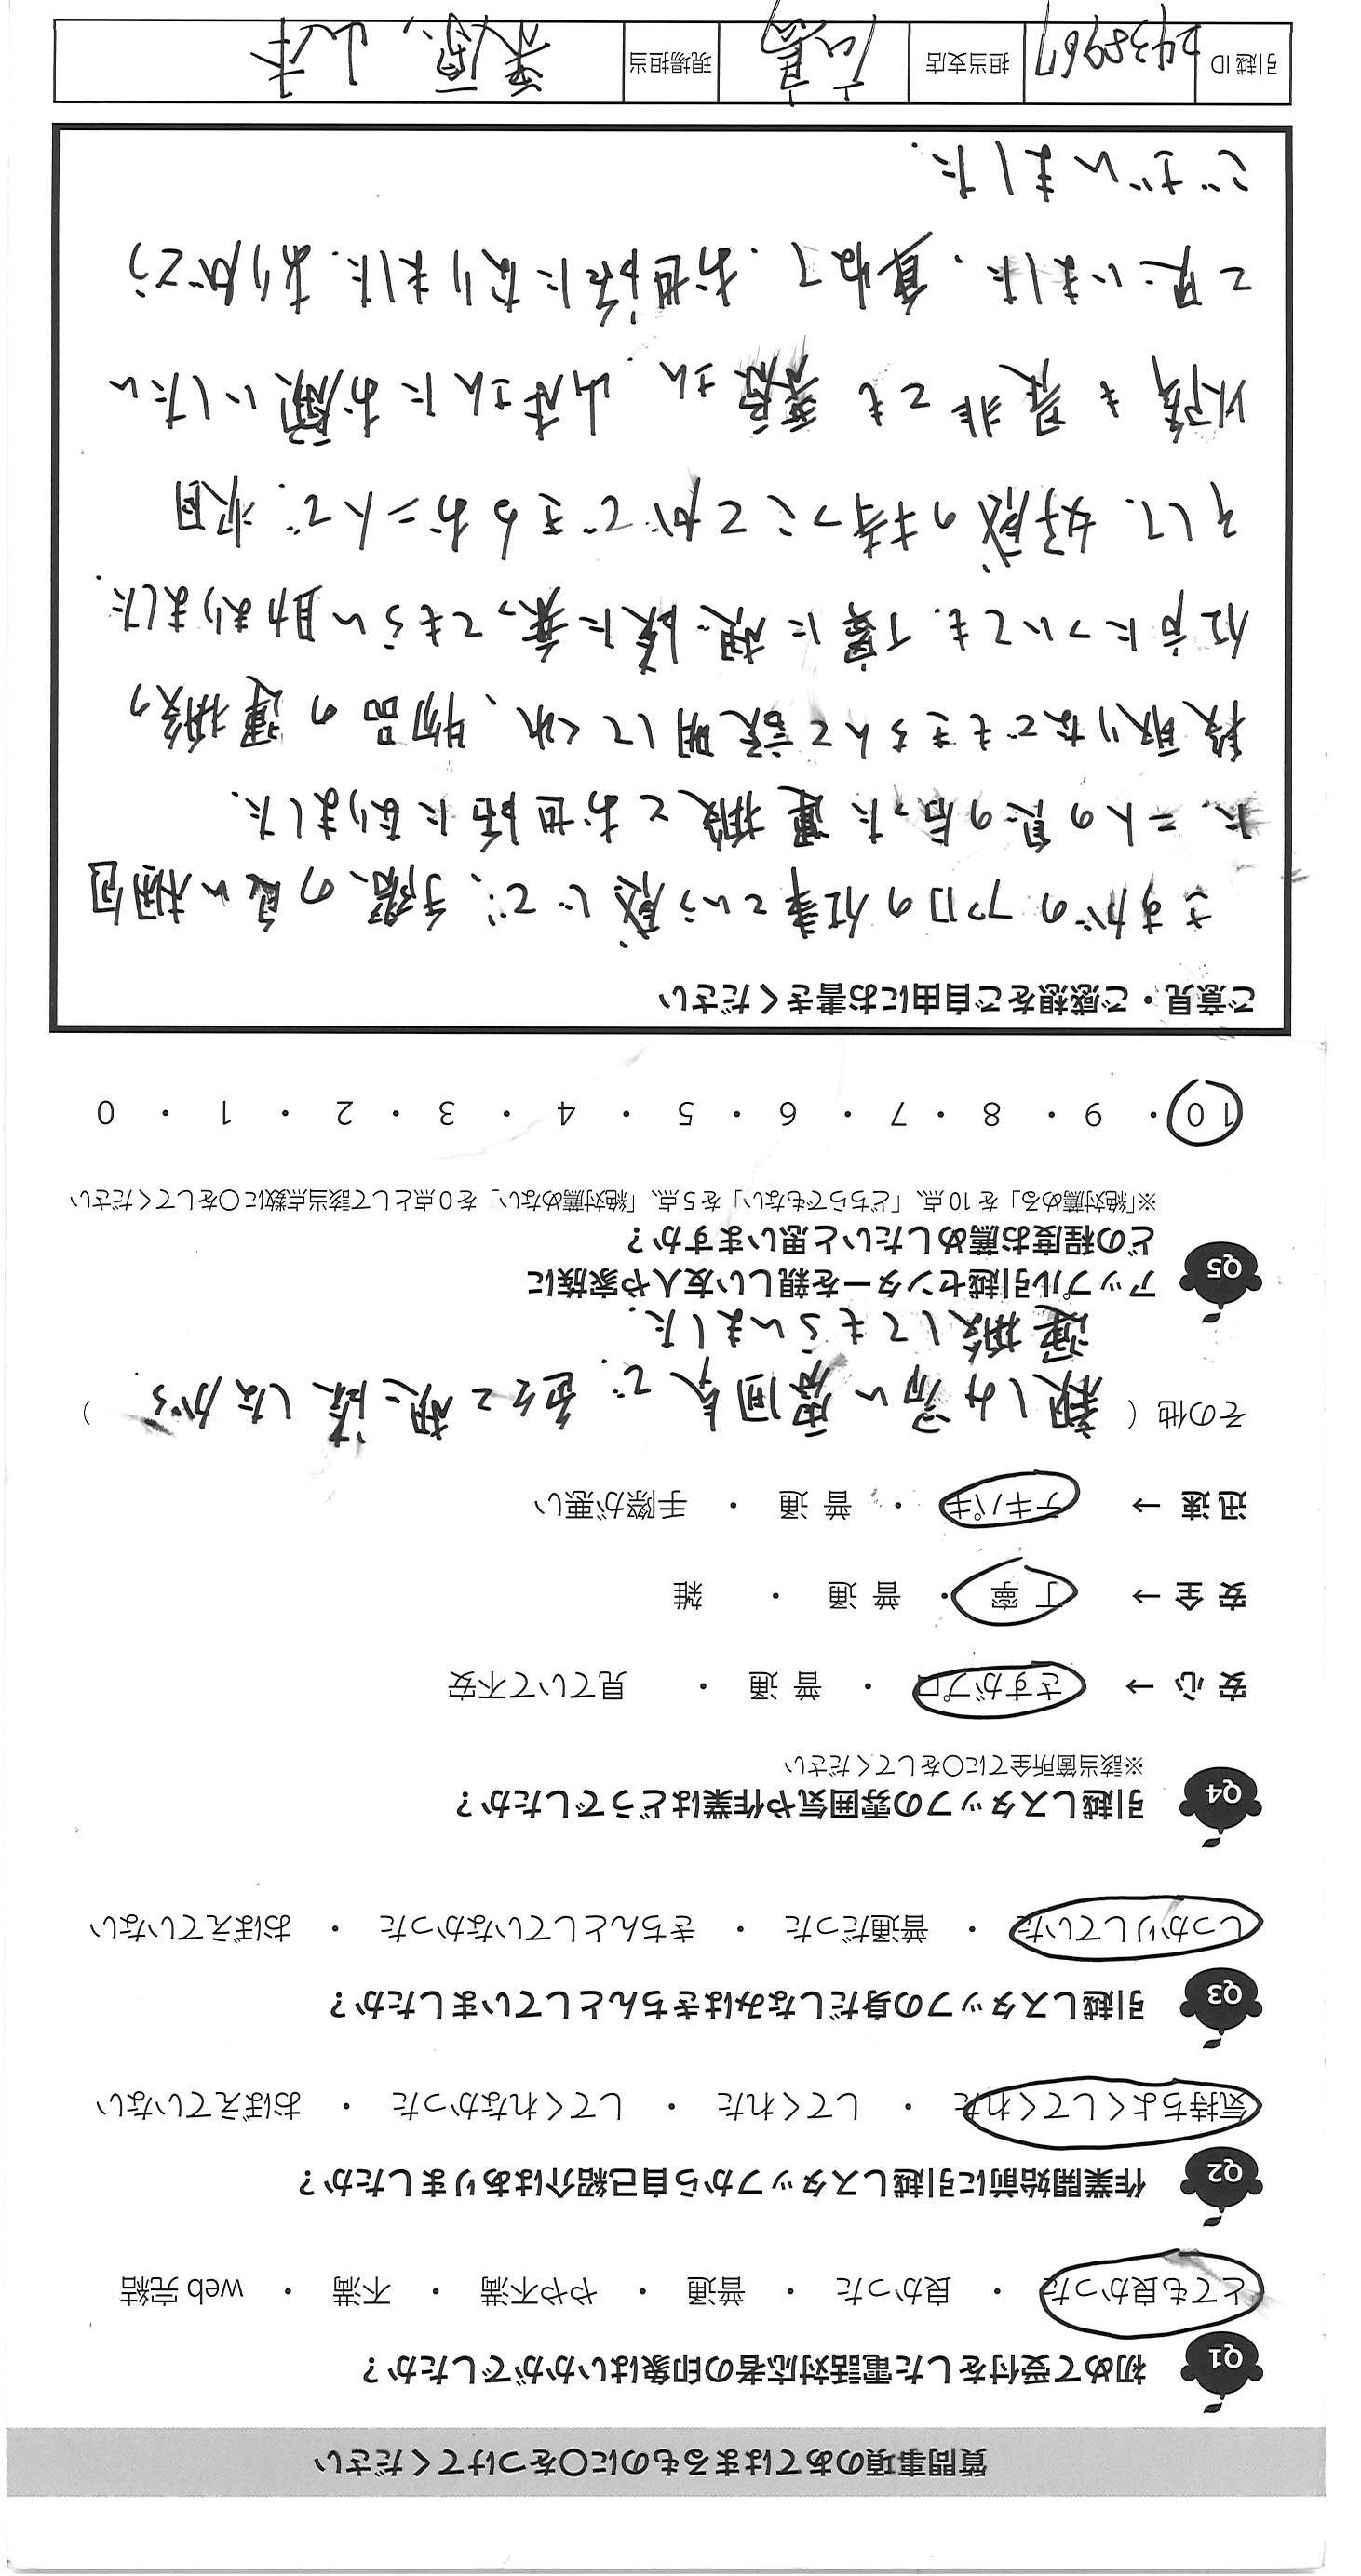 質問事項のあてはまるものに〇をつけてください
Q1 初めて受付をした電話対応者の印象はいかがでしたか?
とても良かった ・ 良かった ・ 普通 ・ やや不満 ・ 不満 ・ web 完結
Q2 作業開始前に引越しスタッフから自己紹介はありましたか?
気持ちよくしてくれた ・ してくれた ・ してくれなかった ・ おぼえていない
Q3 引越しスタッフの身だしなみはきちんとしていましたか?
しっかりしていた ・ 普通だった ・ きちんとしていなかった ・ おぼえていない
Q4 引越しスタッフの雰囲気や作業はどうでしたか?
※該当箇所全てに〇をしてください
安 心 → さすがプロ ・ 普 通 ・ 見ていて不安
安 全 → 丁 寧 ・ 普 通 ・ 雑
迅 速 → テキパキ ・ 普 通 ・ 手際が悪い
その他 ( 親しみ易い雰囲気で、色々と相談しながら )
運搬してもらいました.
Q5 アップル引越センターを親しい友人や家族に
どの程度お薦めしたいと思いますか?
※「絶対薦める」を 10 点、「どちらでもない」を 5 点、「絶対薦めない」を 0 点として該当点数に〇をしてください
10 ・ 9 ・ 8 ・ 7 ・ 6 ・ 5 ・ 4 ・ 3 ・ 2 ・ 1 ・ 0
ご意見・ご感想をご自由にお書きください
さすがのプロの仕事という感じで、手際の良い梱包
に、二人の息の合った運搬とお世話になりました.
段取りなどもきちんと説明してくれ、物品の運搬の
仕方についても、丁寧に相談に乗ってもらい助かりました.
そして、好感の持つことができるお二人で、次回
以降も是非とも 桑原さん、山本さんにお願いしたい
と思いました。重ねて、お世話になりました. ありがとう
ございました.
引越 ID 2438967 担当支店 広島 現場担当 桑原、山本